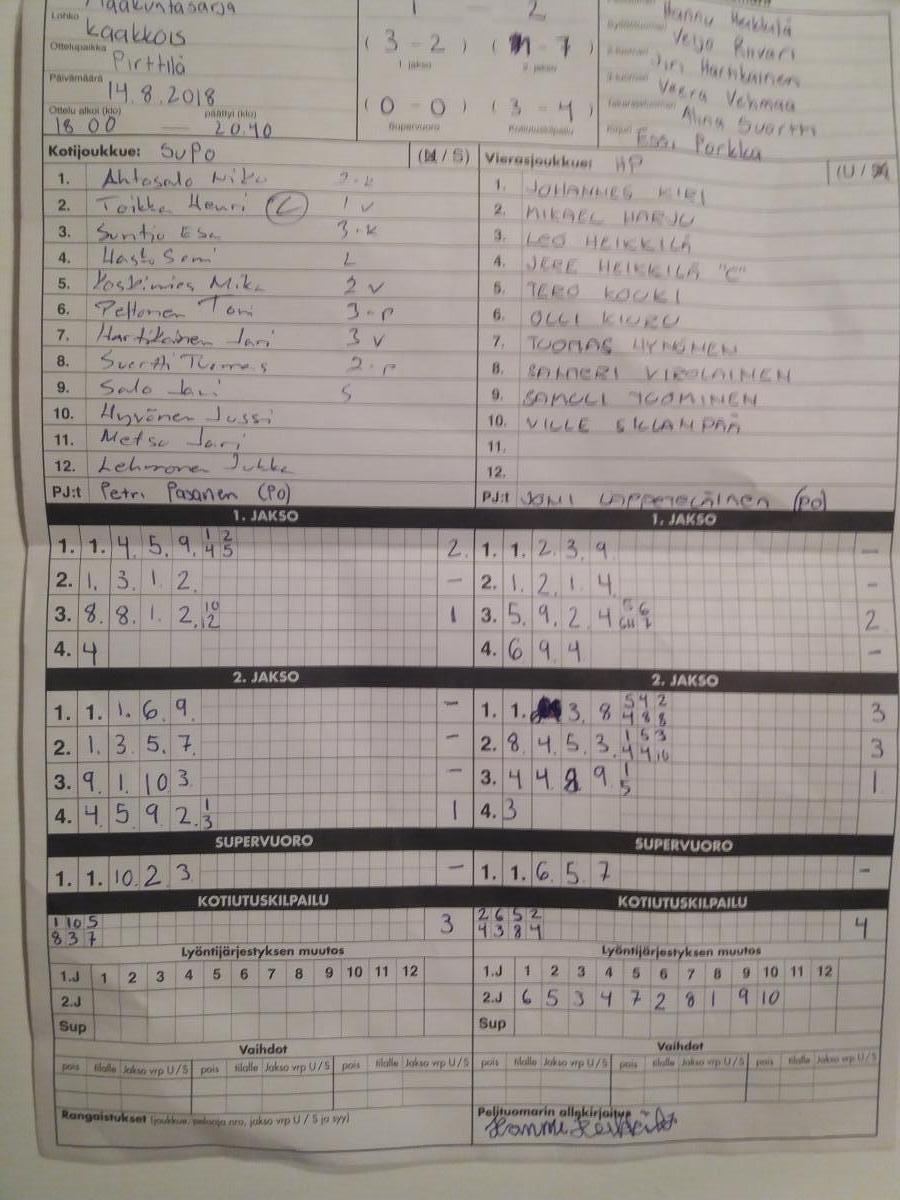 Maakuntasarja
1 - 2
Hannu Heikkilä
Lohko
Kaakkois
( 3 - 2 ) ( 1 - 7 )
1. jakso 2. jakso
Veijo Riivari
Ottelupaikka
Pirttilä
Jiri Hartikainen
Päivämäärä
14.8.2018
Veera Vehmaa
Ottelu alkoi (klo) päättyi (klo)
18 00 — 20.40
( 0 - 0 ) ( 3 - 4 )
Supervuoro Kotiutuskilpailu
Alina Suortti
Essi Porkka
Kotijoukkue: SuPo (U / S) Vierasjoukkue: HP (U / S)
1. Ahtosalo Niko 2-k 1. JOHANNES KIRI
2. Toikka Henri C 1 v 2. MIKAEL HARJU
3. Suntio Esa 3-k 3. LEO HEIKKILÄ
4. Hasto Sami L 4. JERE HEIKKILÄ "C"
5. Koskimies Mika 2 v 5. TERO KOUKI
6. Peltonen Toni 3-p 6. OLLI KIURU
7. Hartikainen Jari 3 v 7. TUOMAS HYNÖNEN
8. Suortti Tuomas 2-p 8. SAMERI VIROLAINEN
9. Salo Jani S 9. SAMULI TUOMINEN
10. Hyvönen Jussi 10. VILLE SILLANPÄÄ
11. Metso Jari 11.
12. Lehmonen Jukka 12.
PJ:t Petri Pasanen (PO) PJ:t JONI LAPPETELÄINEN (PO)
1. JAKSO 1. JAKSO
1. 1. 4. 5. 9. 1 2 2. 1. 1. 2. 3. 9. —
4 5
2. 1. 3. 1. 2. — 2. 1. 2. 1. 4. —
3. 8. 8. 1. 2. 10 1 3. 5. 9. 2. 4 5 6 2
12 7
4. 4 4. 6 9 4 —
2. JAKSO 2. JAKSO
1. 1. 1. 6. 9. — 1. 1. 3. 8 5 4 2 3
4 8 8
2. 1. 3. 5. 7. — 2. 8. 4. 5. 3. 1 5 3 3
4 4 10
3. 9. 1. 10 3. — 3. 4 4 8 9 1 1
5
4. 4. 5. 9. 2. 1 1 4. 3
3
SUPERVUORO SUPERVUORO
1. 1. 10. 2. 3. — 1. 1. 6. 5. 7 —
KOTIUTUSKILPAILU KOTIUTUSKILPAILU
1 10 5 3 2 6 5 2 4
8 3 7 4 3 8 4
Lyöntijärjestyksen muutos Lyöntijärjestyksen muutos
1.J 1 2 3 4 5 6 7 8 9 10 11 12 1.J 1 2 3 4 5 6 7 8 9 10 11 12
2.J 2.J 6 5 3 4 7 2 8 1 9 10
Sup Sup
Vaihdot Vaihdot
pois tilalle Jakso vrp U / S pois tilalle Jakso vrp U / S pois tilalle Jakso vrp U / S pois tilalle Jakso vrp U / S pois tilalle Jakso vrp U / S pois tilalle Jakso vrp U / S
Rangaistukset (joukkue, pelaaja nro, jakso vrp U / S ja syy) Pelituomarin allekirjoitus
Hannu Heikkilä